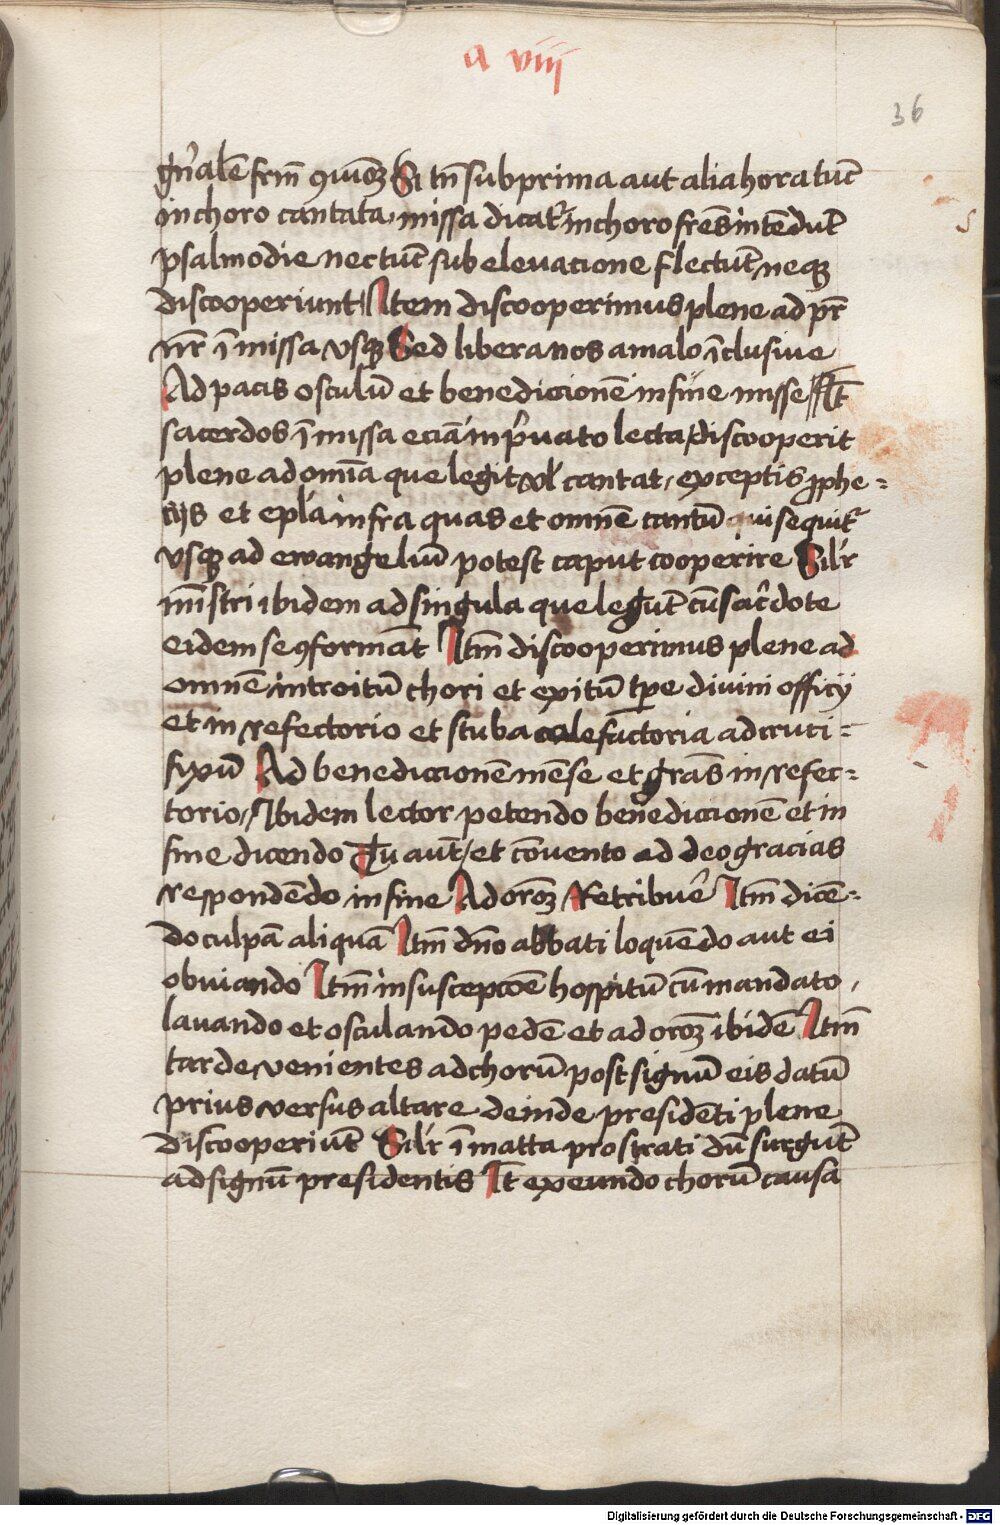 a viij
36
gn̄alē frm̄ ꝯuiōꝫ Si tn̄ sub prima aut alia hora tūc
in choro cantata missa dicat᷑ in choro fres̄ intēdūt
psalmodie nec tūc sub eleuacione flectūt neqꝫ
discooperiunt Item discooperimus plene ad pr̄
nr̄ ī missa vsqꝫ Sed libera nos a malo īclusiue
Ad pacis osculū et benediccionē in fine misse
sacerdos ī missa eciā in p̓uato lecta discooperit
plene ad omīa que legit vl̓ cantat exceptis ꝓphe=
cijs et epl̓a infra quas et omnē cantū qui sequit᷑
vsqꝫ ad ewangeliū potest caput cooperire Sil̓r
mīstri ibidem ad singula que legūt cū sac̓dote
eidem se ꝯformāt Itm̄ discooperimus plene ad
omnē introitū chori et exitū tp̄e diuini officij
et in refectorio et stuba calefactoria ad cruci=
fixū Ad benediccionē mēse et gr̄as in refec=
torio Ibidem lector petendo benediccionē et in
fine dicendo Tu aūt et cōuento ad deo gracias
respondēdo in fine Ad orōꝫ Retribue̓ Itm̄ dicē=
do culpā aliquā Itm̄ dn̄o abbati loquēdo aut ei
obuiando Itm̄ in suscepcōe hospitū cū mandato
lauando et osculando pedē et ad orōꝫ ibidē Itm̄
tarde venientes ad chorū post signū eis datū
prius versus altare deinde presidēti plene
discooperiūt Sil̓r ī matta prostrati dū surgūt
ad signū presidentis It̄ exeundo chorū causa
Digitalisierung gefördert durch die Deutsche Forschungsgemeinschaft - DFG